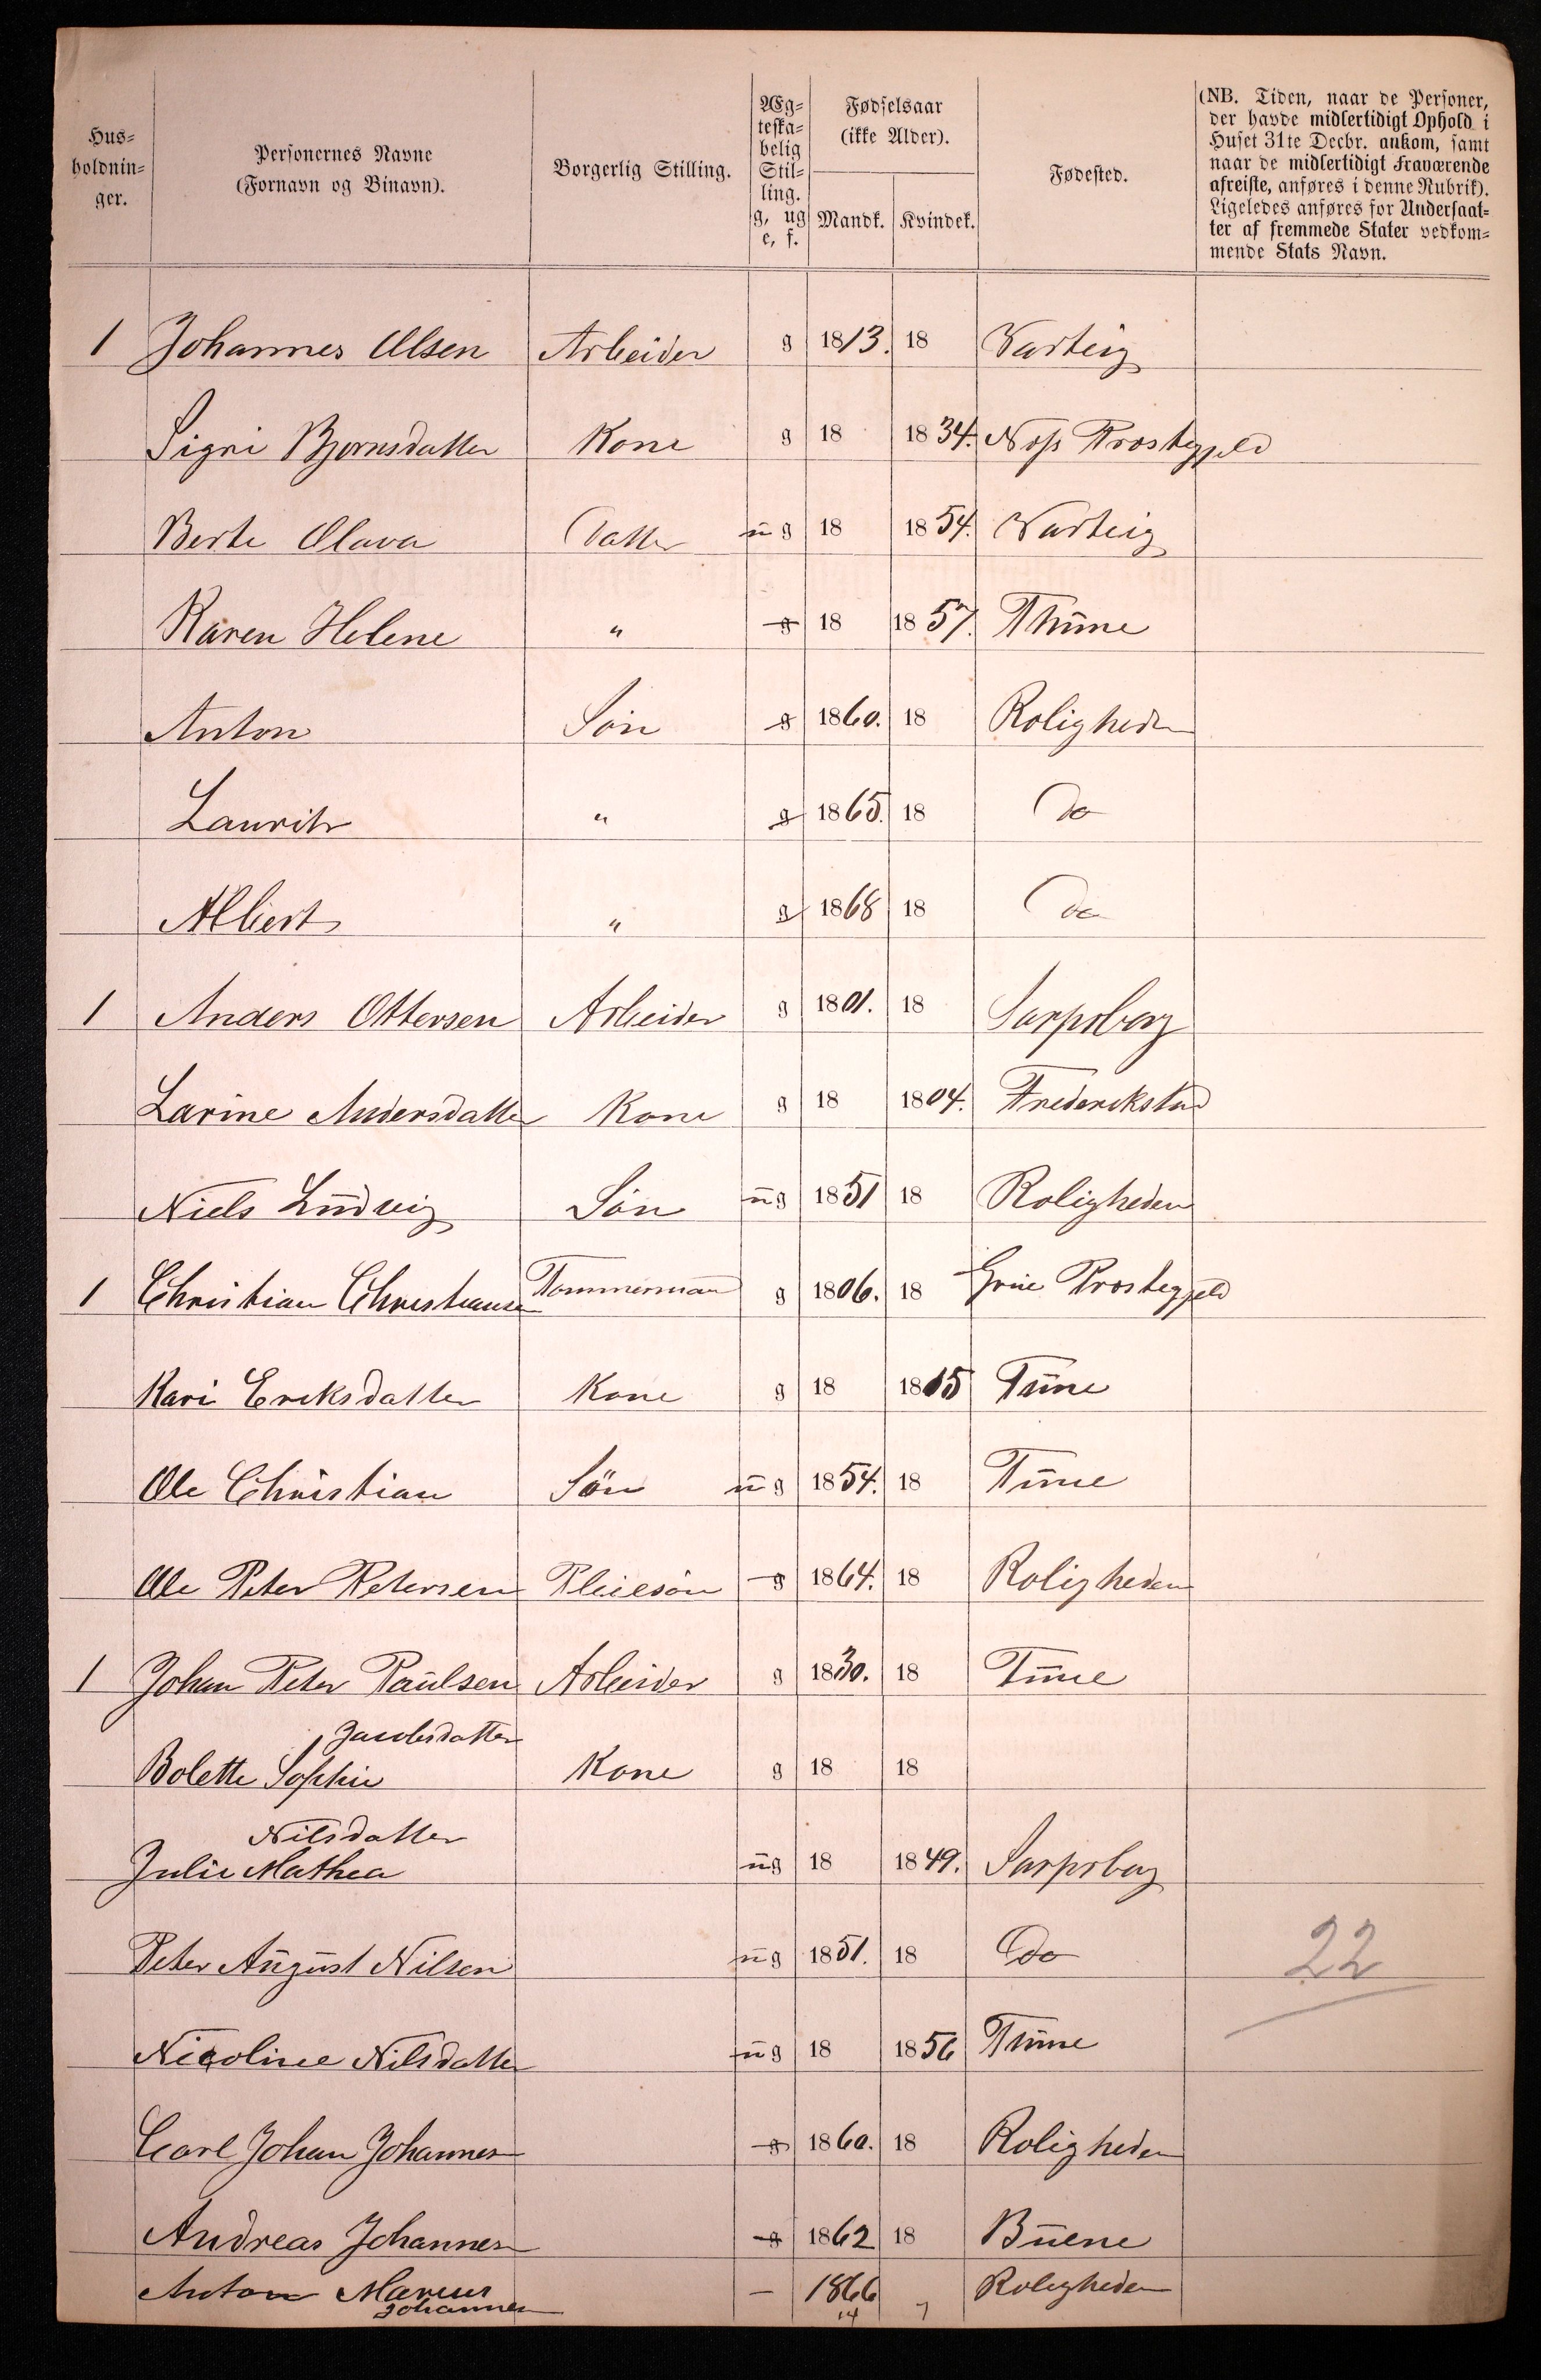 Hus-
holdnin-
ger.
Personernes Navne
(Fornavn og Binavn).
Borgerlig Stilling.
Æg-
teska-
belig
Stil-
ling.
g, ug
e, f.
Fødselsaar
(ikke Alder).
Mandk. Kvindek.
Fødested.
(NB. Tiden, naar de Personer,
der havde midlertidigt Ophold i
Huset 31te Decbr. ankom, samt
naar de midlertidigt Fraværende
afreiste, anføres i denne Rubrik).
Ligeledes anføres for Undersaat-
ter af fremmede Stater vedkom-
mende Stats Navn.
1 Johannes Olsen Arbeider g 1813. 18 Varteig
Sigri Bjornsdatter Kone g 18 1834. Næss Prostegjeld
Berte Olava Datter ug 18 1854. Varteig
Karen Helene " g 18 1857. Thune
Anton Søn g 1860. 18 Roligheden
Lauritz " g 1865. 18 Do
Albert " g 1868 18 Do
1 Anders Ottersen Arbeider g 1801. 18 Sarpsborg
Larine Andersdatter Kone g 18 1804. Frederekstad
Niels Ludvig Søn ug 1851 18 Roligheden
1 Christian Christiansen Tommerman g 1806. 18 Grue Prostegjeld
Kari Eriksdatter Kone g 18 1815 Tune
Ole Christian Søn ug 1854. 18 Tune
Ole Peter Petersen Pleiesøn g 1864. 18 Roligheden
1 Johan Peter Paulsen Arbeider g 1830. 18 Tune
Jacobsdatter
Bolette Sophie Kone g 18 18
Nilsdatter
Julie Mathea ug 18 1849. Sarpsborg
Peter August Nilsen ug 1851. 18 Do
22
Nicoline Nilsdatter ug 18 1856 Tune
Carl Johan Johannes g 1860. 18 Roligheden
Andreas Johannes g 1862 18 Buene
Anton Marius – 1866 Roligheden
Johannes 14 7